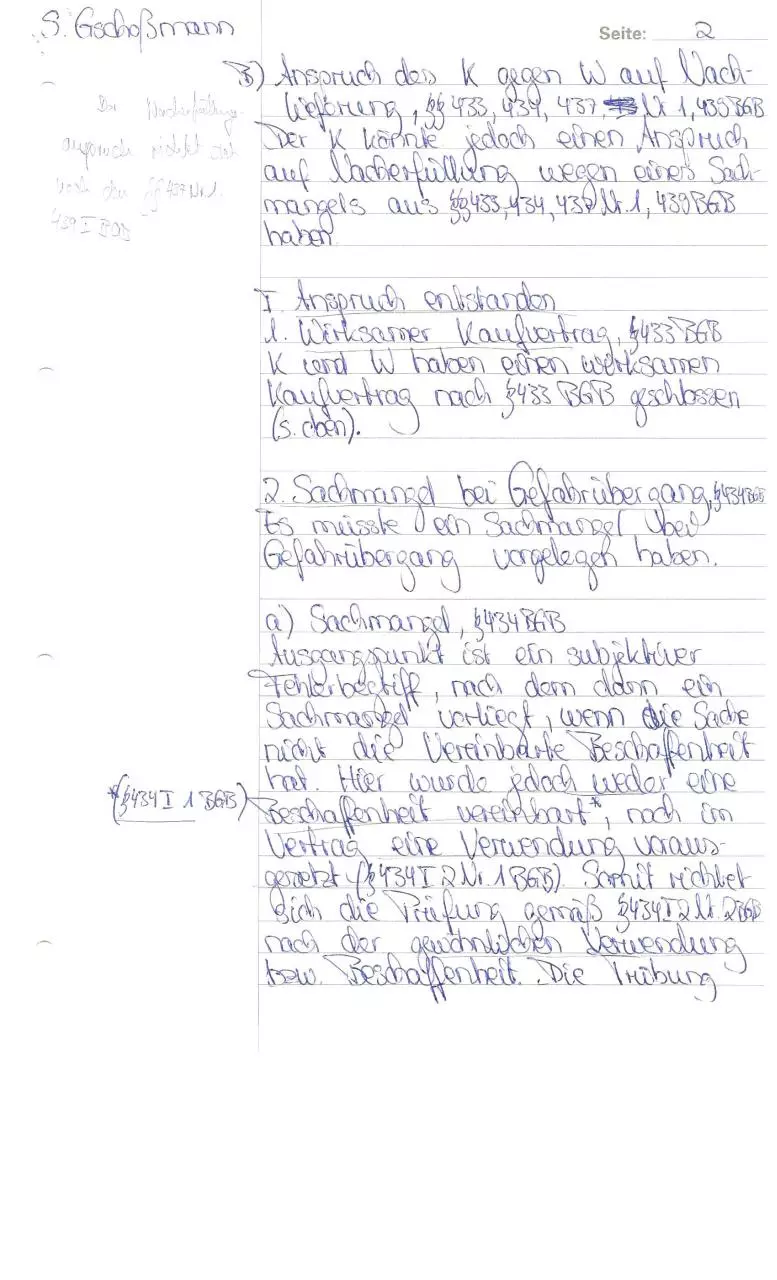 S. Gschoßmann
Seite: 2
B) Anspruch des K gegen W auf Nach-
lieferung, §§ 433, 434, 437 Nr. 1, 439 BGB
Der K könnte jedoch einen Anspruch
auf Nacherfüllung wegen eines Sach-
mangels aus §§ 433, 434, 437 Nr. 1, 439 BGB
haben.
Der Nacherfüllungs-
anspruch richtet sich
nach den §§ 437 Nr. 1,
439 I BGB
I. Anspruch entstanden
1. Wirksamer Kaufvertrag, § 433 BGB
K und W haben einen wirksamen
Kaufvertrag nach § 433 BGB geschlossen
(s. oben).
2. Sachmangel bei Gefahrübergang, § 434 BGB
Es müsste ein Sachmangel bei
Gefahrübergang vorgelegen haben.
a) Sachmangel, § 434 BGB
Ausgangspunkt ist ein subjektiver
Fehlerbegriff, nach dem dann ein
Sachmangel vorliegt, wenn die Sache
nicht die Vereinbarte Beschaffenheit
hat. Hier wurde jedoch weder eine
*(§ 434 I 1 BGB)
Beschaffenheit vereinbart*, noch im
Vertrag eine Verwendung voraus-
gesetzt (§ 434 I 2 Nr. 1 BGB). Somit richtet
sich die Prüfung gemäß § 434 I 2 Nr. 2 BGB
nach der gewöhnlichen Verwendung
bzw. Beschaffenheit. Die Trübung